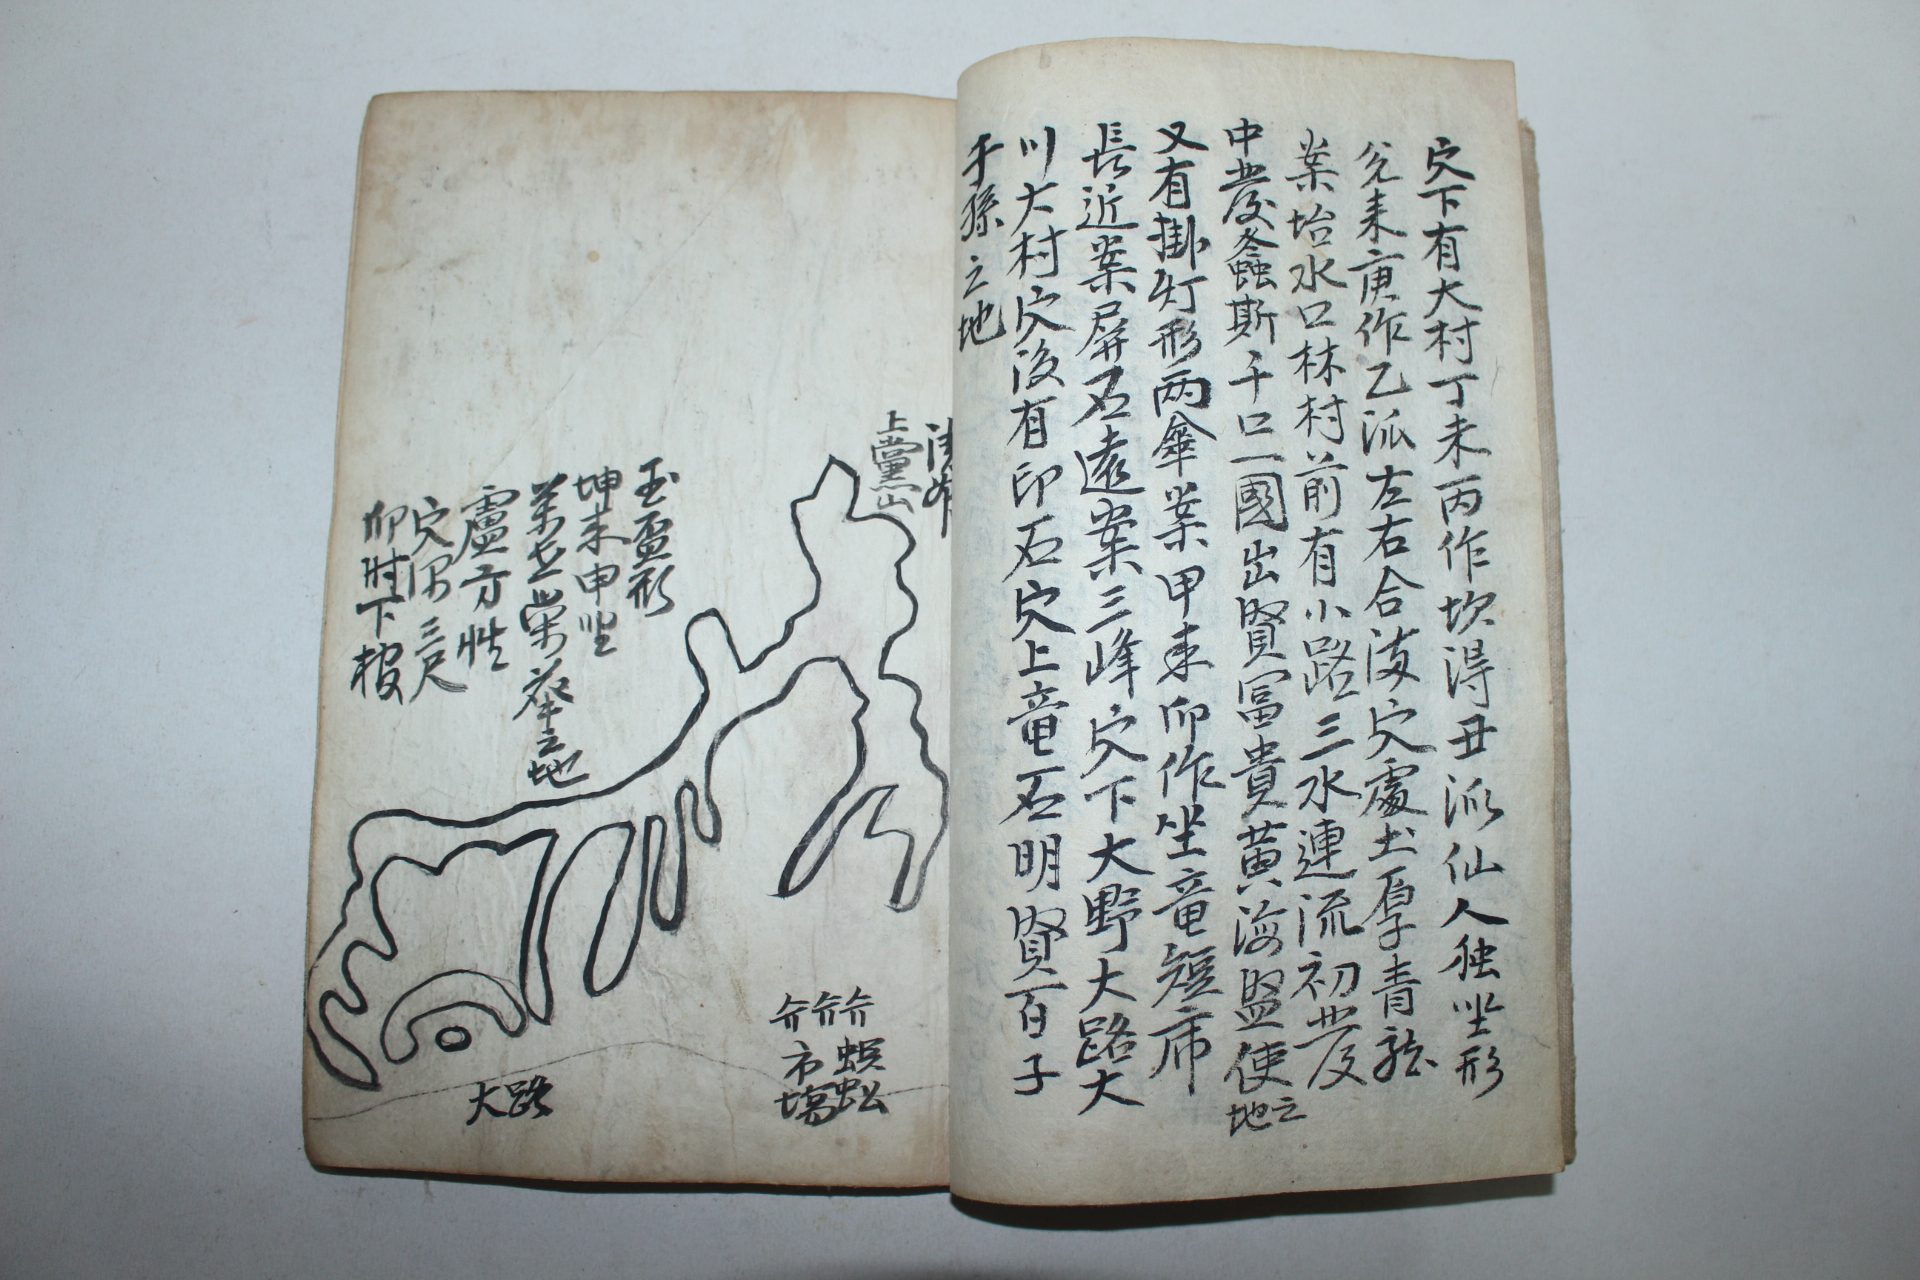 穴下有大村丁未丙作坎得丑派仙人独坐形
兌来庚作乙派左右合海穴處土厚青龍
案坮水口林村前有小路三水連流初發
中發螽斯千口一國出賢冨貴黄海監使之地
又有掛灯形两傘案甲来卯作坐竜短席
長近案屏石遠案三峰穴下大野大路大
川大村穴後有印石穴上竜石明賢百子
千孫之地
上黨山
玉盃形
坤来申坐
萬世榮華之地
盧方性
穴深三尺
卯时下棺
介介介
蜈蚣
市塲
大路